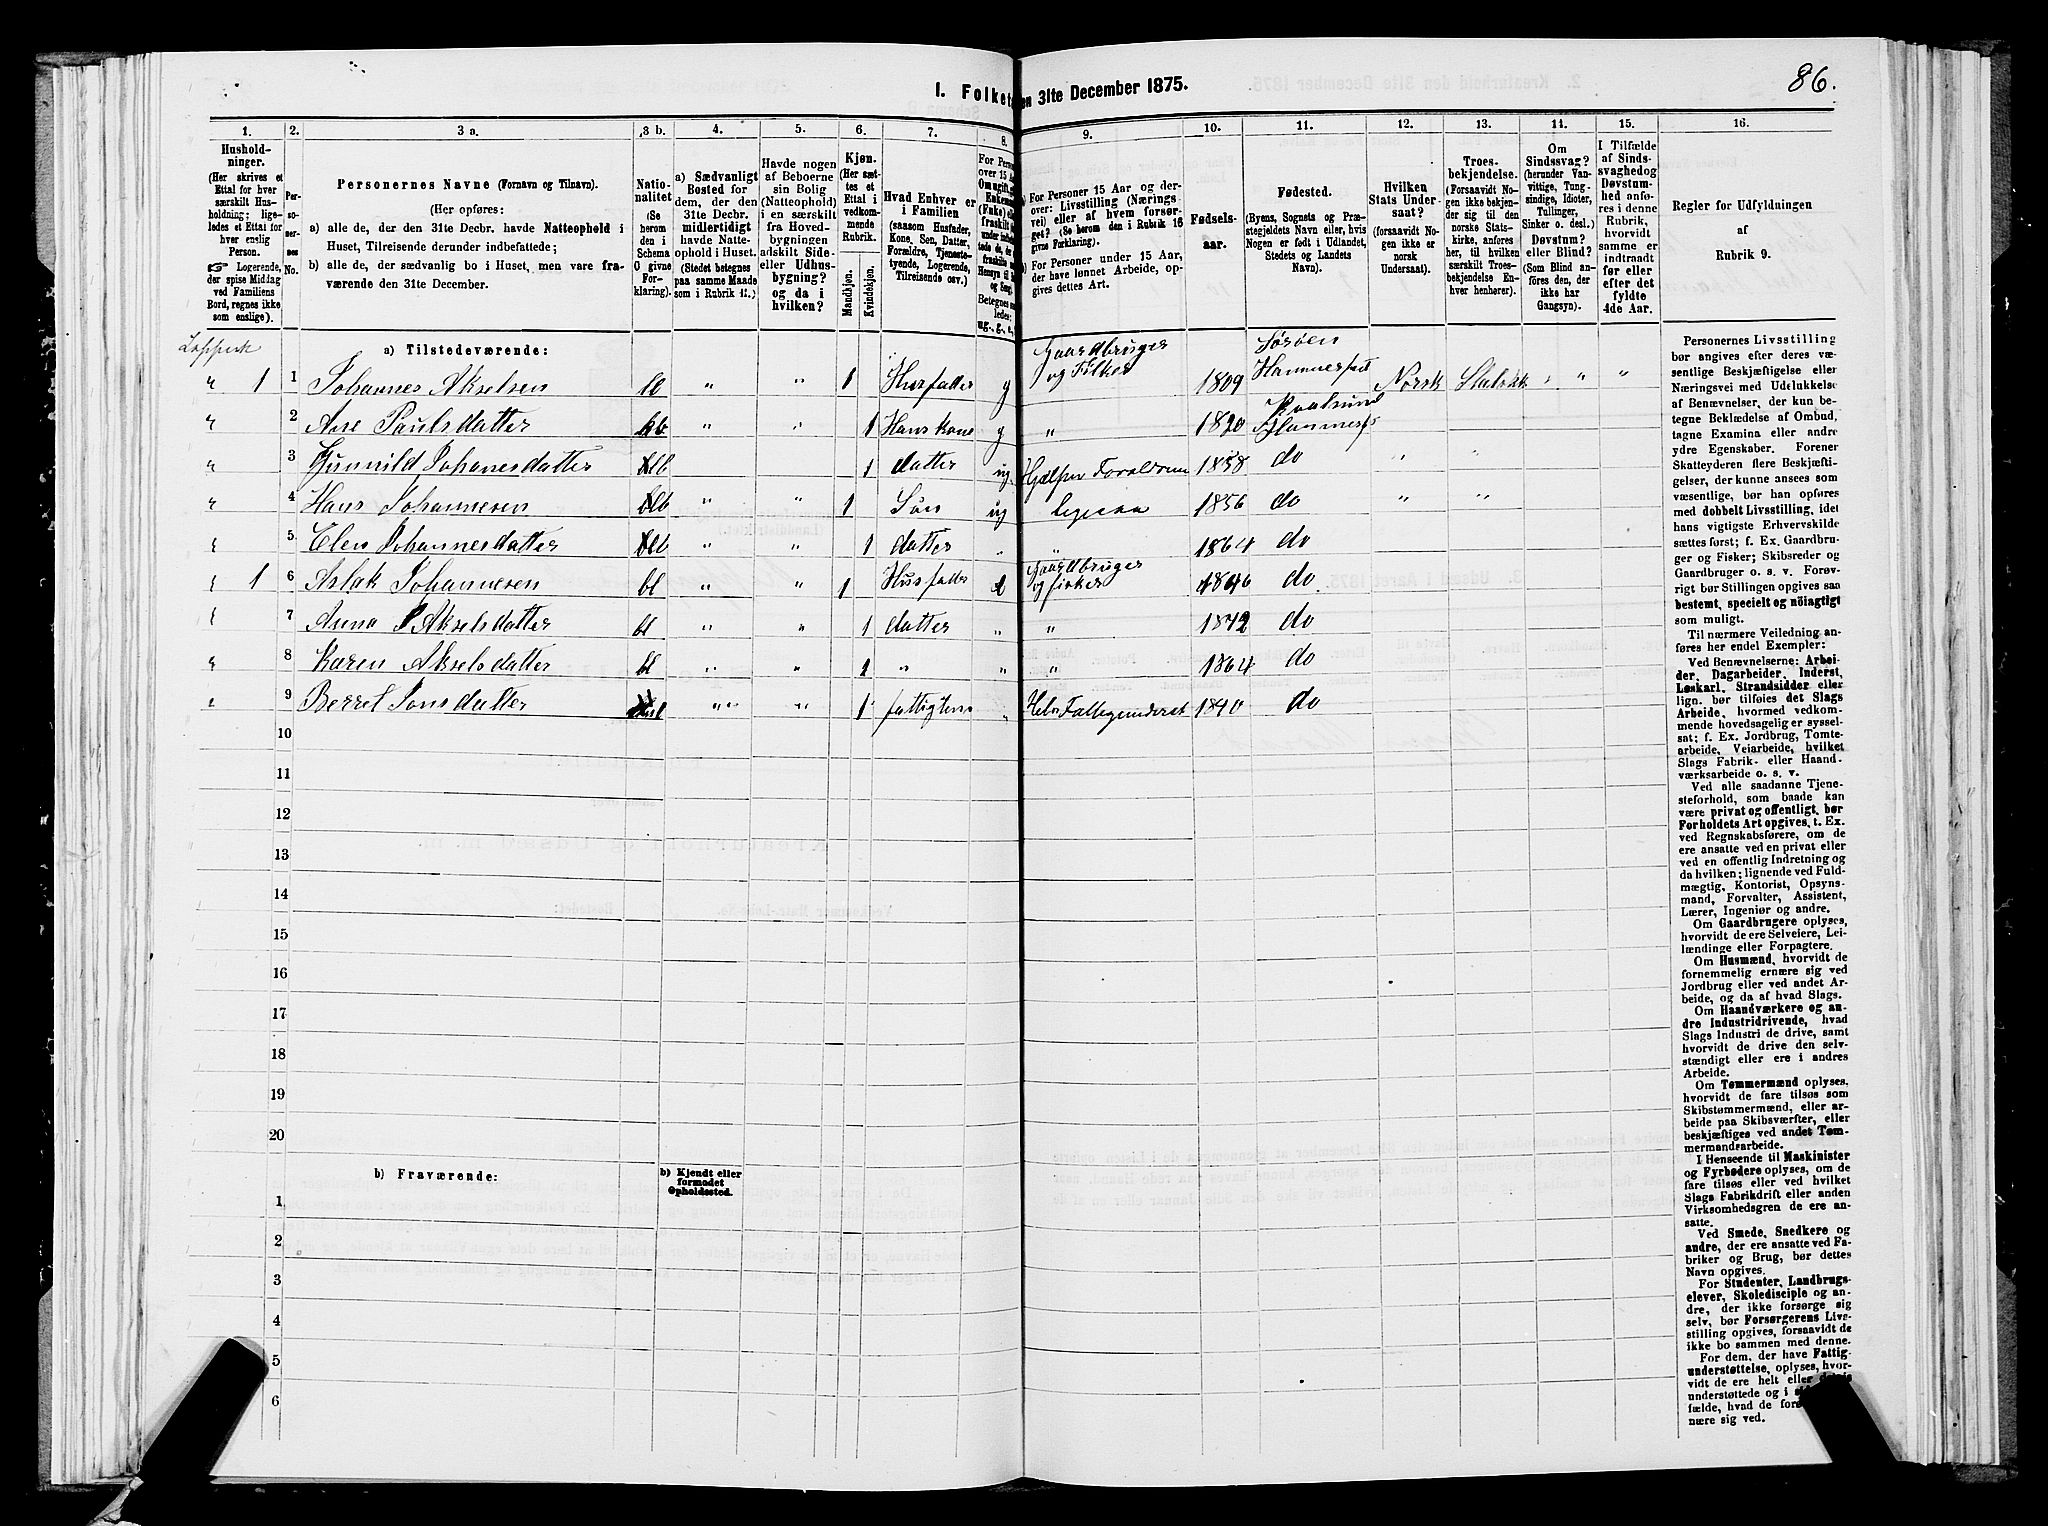 86.
I. Folket
en 31te December 1875.
1. 2. 3 a. 3 b. 4. 5. 6. 7. 8. 9. 10. 11. 12. 13. 14. 15. 16.
Hushold-
ninger.
(Her skrives et
Ettal for hver
særskilt Hus-
holdning; lige-
ledes et Ettal for
hver enslig
Person.
☞ Logerende,
der spise Middag
ved Familiens
Bord, regnes ikke
som enslige).
Per-
so-
ner-
nes
No.
Personernes Navne (Fornavn og Tilnavn).
(Her opføres:
a) alle de, der den 31te Decbr. havde Natteophold i
Huset, Tilreisende derunder indbefattede;
b) alle de, der sædvanlig bo i Huset, men vare fra-
værende den 31te December.
Natio-
nalitet
(Se
herom
den i
Schema
O givne
For-
klaring).
a) Sædvanligt
Bosted for
dem, der den
31te Decbr.
midlertidigt
havde Natte-
ophold i Huset.
(Stedet betegnes
paa samme Maade
som i Rubrik 11.)
Havde nogen
af Beboerne
sin Bolig
(Natteophold)
i en særskilt
fra Hoved-
bygningen
adskilt Side-
eller Udhus-
bygning?
og da i
hvilken?
Kjøn.
(Her sæt-
tes et
Ettal i
vedkom-
mende
Rubrik.
Mandkjøn.
Kvindekjøn.
Hvad Enhver er
i Familien
(saasom Husfader,
Kone, Søn, Datter,
Forældre, Tjeneste-
tyende, Logerende,
Tilreisende osv.)
For Perso
over 15 Aa
Om ugift, g
Enkema
(Enke) elle
fraskilt
Betegnes saa
ledes:
ug., g., e.,
For Personer 15 Aar og der-
over: Livsstilling (Nærings
vei) eller af hvem forsør-
get? (Se herom den i Rubrik 16
givne Forklaring).
For Personer under 15 Aar,
der have lønnet Arbeide, op-
gives dettes Art.
Fødsels-
aar.
Fødested.
(Byens, Sognets og Præ-
stegjeldets Navn eller, hvis
Nogen er født i Udlandet,
Stedets og Landets
Navn).
Hvilken
Stats Under-
saat?
(forsaavidt No-
gen ikke er
norsk
Undersaat).
Troes-
bekjendelse.
(Forsaavidt No-
gen ikke bekjen-
der sig til den
norske Stats-
kirke, anføres
her, til hvilken
særskilt Troes-
bekjendelse En-
hver henhører).
Om
Sindssvag?
(herunder Van-
vittige, Tung-
sindige, Idioter,
Tullinger,
Sinker o. desl.)
Døvstum?
eller Blind?
(Som Blind an-
føres den, der
ikke har
Gangsyn).
I Tilfælde
af Sinds-
svaghed og
Døvstum-
hed anfø-
res i denne
Rubrik,
hvorvidt
samme er
indtraadt
før eller
efter det
fyldte
4de Aar.
Regler for Udfyldningen
af
Rubrik 9.
Loppesk
a) Tilstedeværende:
" 1 1 Johannes Akselsen lo " " 1 Husfader g Gaardbruger og Fisker 1809 Sørøen Hammerfest Norsk Statskk " " "
" 2 Ane Paulsdatter " " 1 Hans kone g " 1820 Kvalsund Hammerfs
" 3 Gunnild Johanesdatter lb 1 datter ug Hjelper Foraldrene 1858 do " "
" 4 Hans Johannesen lb " " 1 Søn ug ligesaa 1856 do " "
" 5 Elen Johannesdatter lb " " 1 datter " " 1864 do
" 1 6 Aslak Johannesen bl " " 1 Husfader Gaardbruger og fisker 1846 do
" 7 Anna Akselsdatter bl " " 1 datter " " 1842 do
" 8 Karen Akselsdatter bl " " 1 " " " 1864 do
" 9 Berret Jonsdatter " " 1 fattiglem " 1840 do
10
11
12
13
14
15
16
17
18
19
20
b) Fraværende:
b) Kjendt eller
formodet
Opholdssted.
1
2
3
4
5
6
Personernes Livsstilling
bør angives efter deres væ-
sentlige Beskjæftigelse eller
Næringsvei med Udelukkelse
af Benævnelser, der kun be-
tegne Beklædelse af Ombud,
tagne Examina eller andre
ydre Egenskaber. Forener
Skatteyderen flere Beskjæfti-
gelser, der kunne ansees som
væsentlige, bør han opføres
med dobbelt Livsstilling, idet
hans vigtigste Erhvervskilde
sættes først; f. Ex. Gaardbru-
ger og Fisker; Skibsreder og
Gaardbruger o. s. v. Forøv-
rigt bør Stillingen opgives saa
bestemt, specielt og nöiagtigt
som muligt.
Til nærmere Veiledning an-
føres her endel Exempler:
Ved Benævnelserne: Arbei-
der, Dagarbeider, Inderst,
Løskarl, Strandsidder eller
lign. bør tilføies det Slags
Arbeide, hvormed vedkom-
mende hovedsagelig er syssel-
sat; f. Ex. Jordbrug, Tomte-
arbeide, Veiarbeide, hvilket
Slags Fabrik- eller Haand-
værksarbeide o. s. v.
Ved alle saadanne Tjene-
steforhold, som baade kan
være privat og offentligt, bør
Forholdets Art opgives, t. Ex.
ved Regnskabsførere, om de
ere ansatte ved en privat eller
ved en offentlig Indretning og
da hvilken; lignende ved Fuld-
mægtig, Kontorist, Opsyns-
mand, Forvalter, Assistent,
Lærer, Ingeniør og andre.
Om Gaardbrugere oplyses,
hvorvidt de ere Selveiere, Lei-
lændinge eller Forpagtere.
Om Husmænd, hvorvidt de
fornemmelig ernære sig ved
Jordbrug eller ved andet Ar-
beide, og da af hvad Slags.
Om Haandværkere og an-
dre Industridrivende, hvad
Slags Industri de drive, samt
hvorvidt de drive den selv-
stændigt eller ere i andres
Arbeide.
Om Tømmermænd oplyses,
hvorvidt de fare tilsøs som
Skibstømmermænd, eller ar-
beide paa Skibsværfter, eller
beskjæftiges ved andet Tøm-
mermandsarbeide.
I Henseende til Maskinister
og Fyrbødere oplyses, om de
fare tilsøs eller ved hvilket
Slags Fabrikdrift eller anden
Virksomhedsgren de ere an-
satte.
Ved Smede, Snedkere og
andre, der ere ansatte ved Fa-
briker og Brug, bør dettes
Navn opgives.
For Studenter, Landbrugs-
elever, Skoledisciple og an-
dre, der ikke forsørge sig
selv, bør Forsørgerens Livs-
stilling opgives, forsaavidt de
ikke bo sammen med denne.
For dem, der have Fattig-
understøttelse, oplyses, hvor-
vidt de ere helt eller
understøttede og i
fælde, hvad de
nære sig ved.